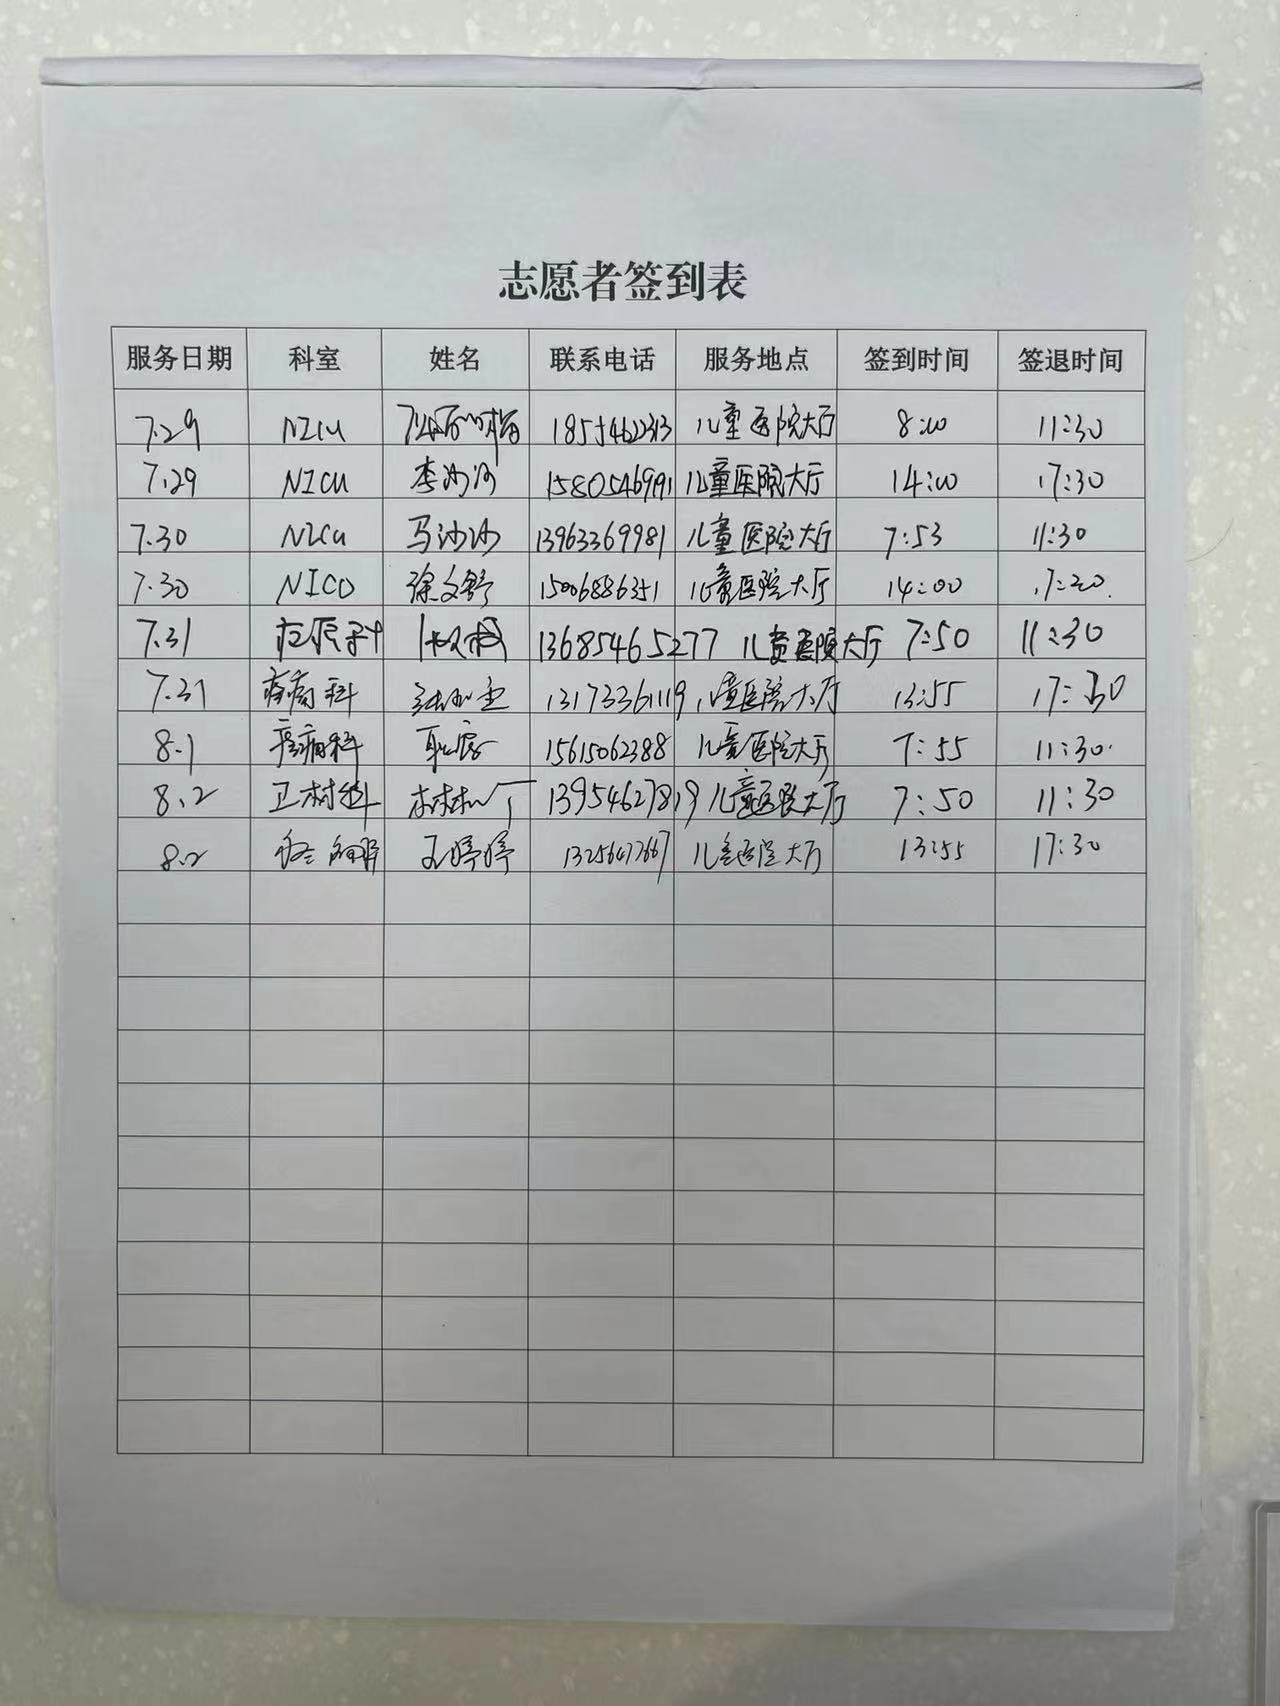 志愿者签到表
服务日期 科室 姓名 联系电话 服务地点 签到时间 签退时间
7.29 NICU 儿童医院大厅 8:00 11:30
7.29 NICU 李沙沙 15805469191 儿童医院大厅 14:00 17:30
7.30 NICU 马沙沙 13963369981 儿童医院大厅 7:53 11:30
7.30 NICU 徐文舒 15006886351 儿童医院大厅 14:00 17:20
7.31 13685465277 儿童医院大厅 7:50 11:30
7.31 疼痛科 13173361119 儿童医院大厅 13:55 17:30
8.1 疼痛科 15615062388 儿童医院大厅 7:55 11:30
8.2 卫材科 13954627819 儿童医院大厅 7:50 11:30
8.2 孟婷婷 儿童医院大厅 13:55 17:30